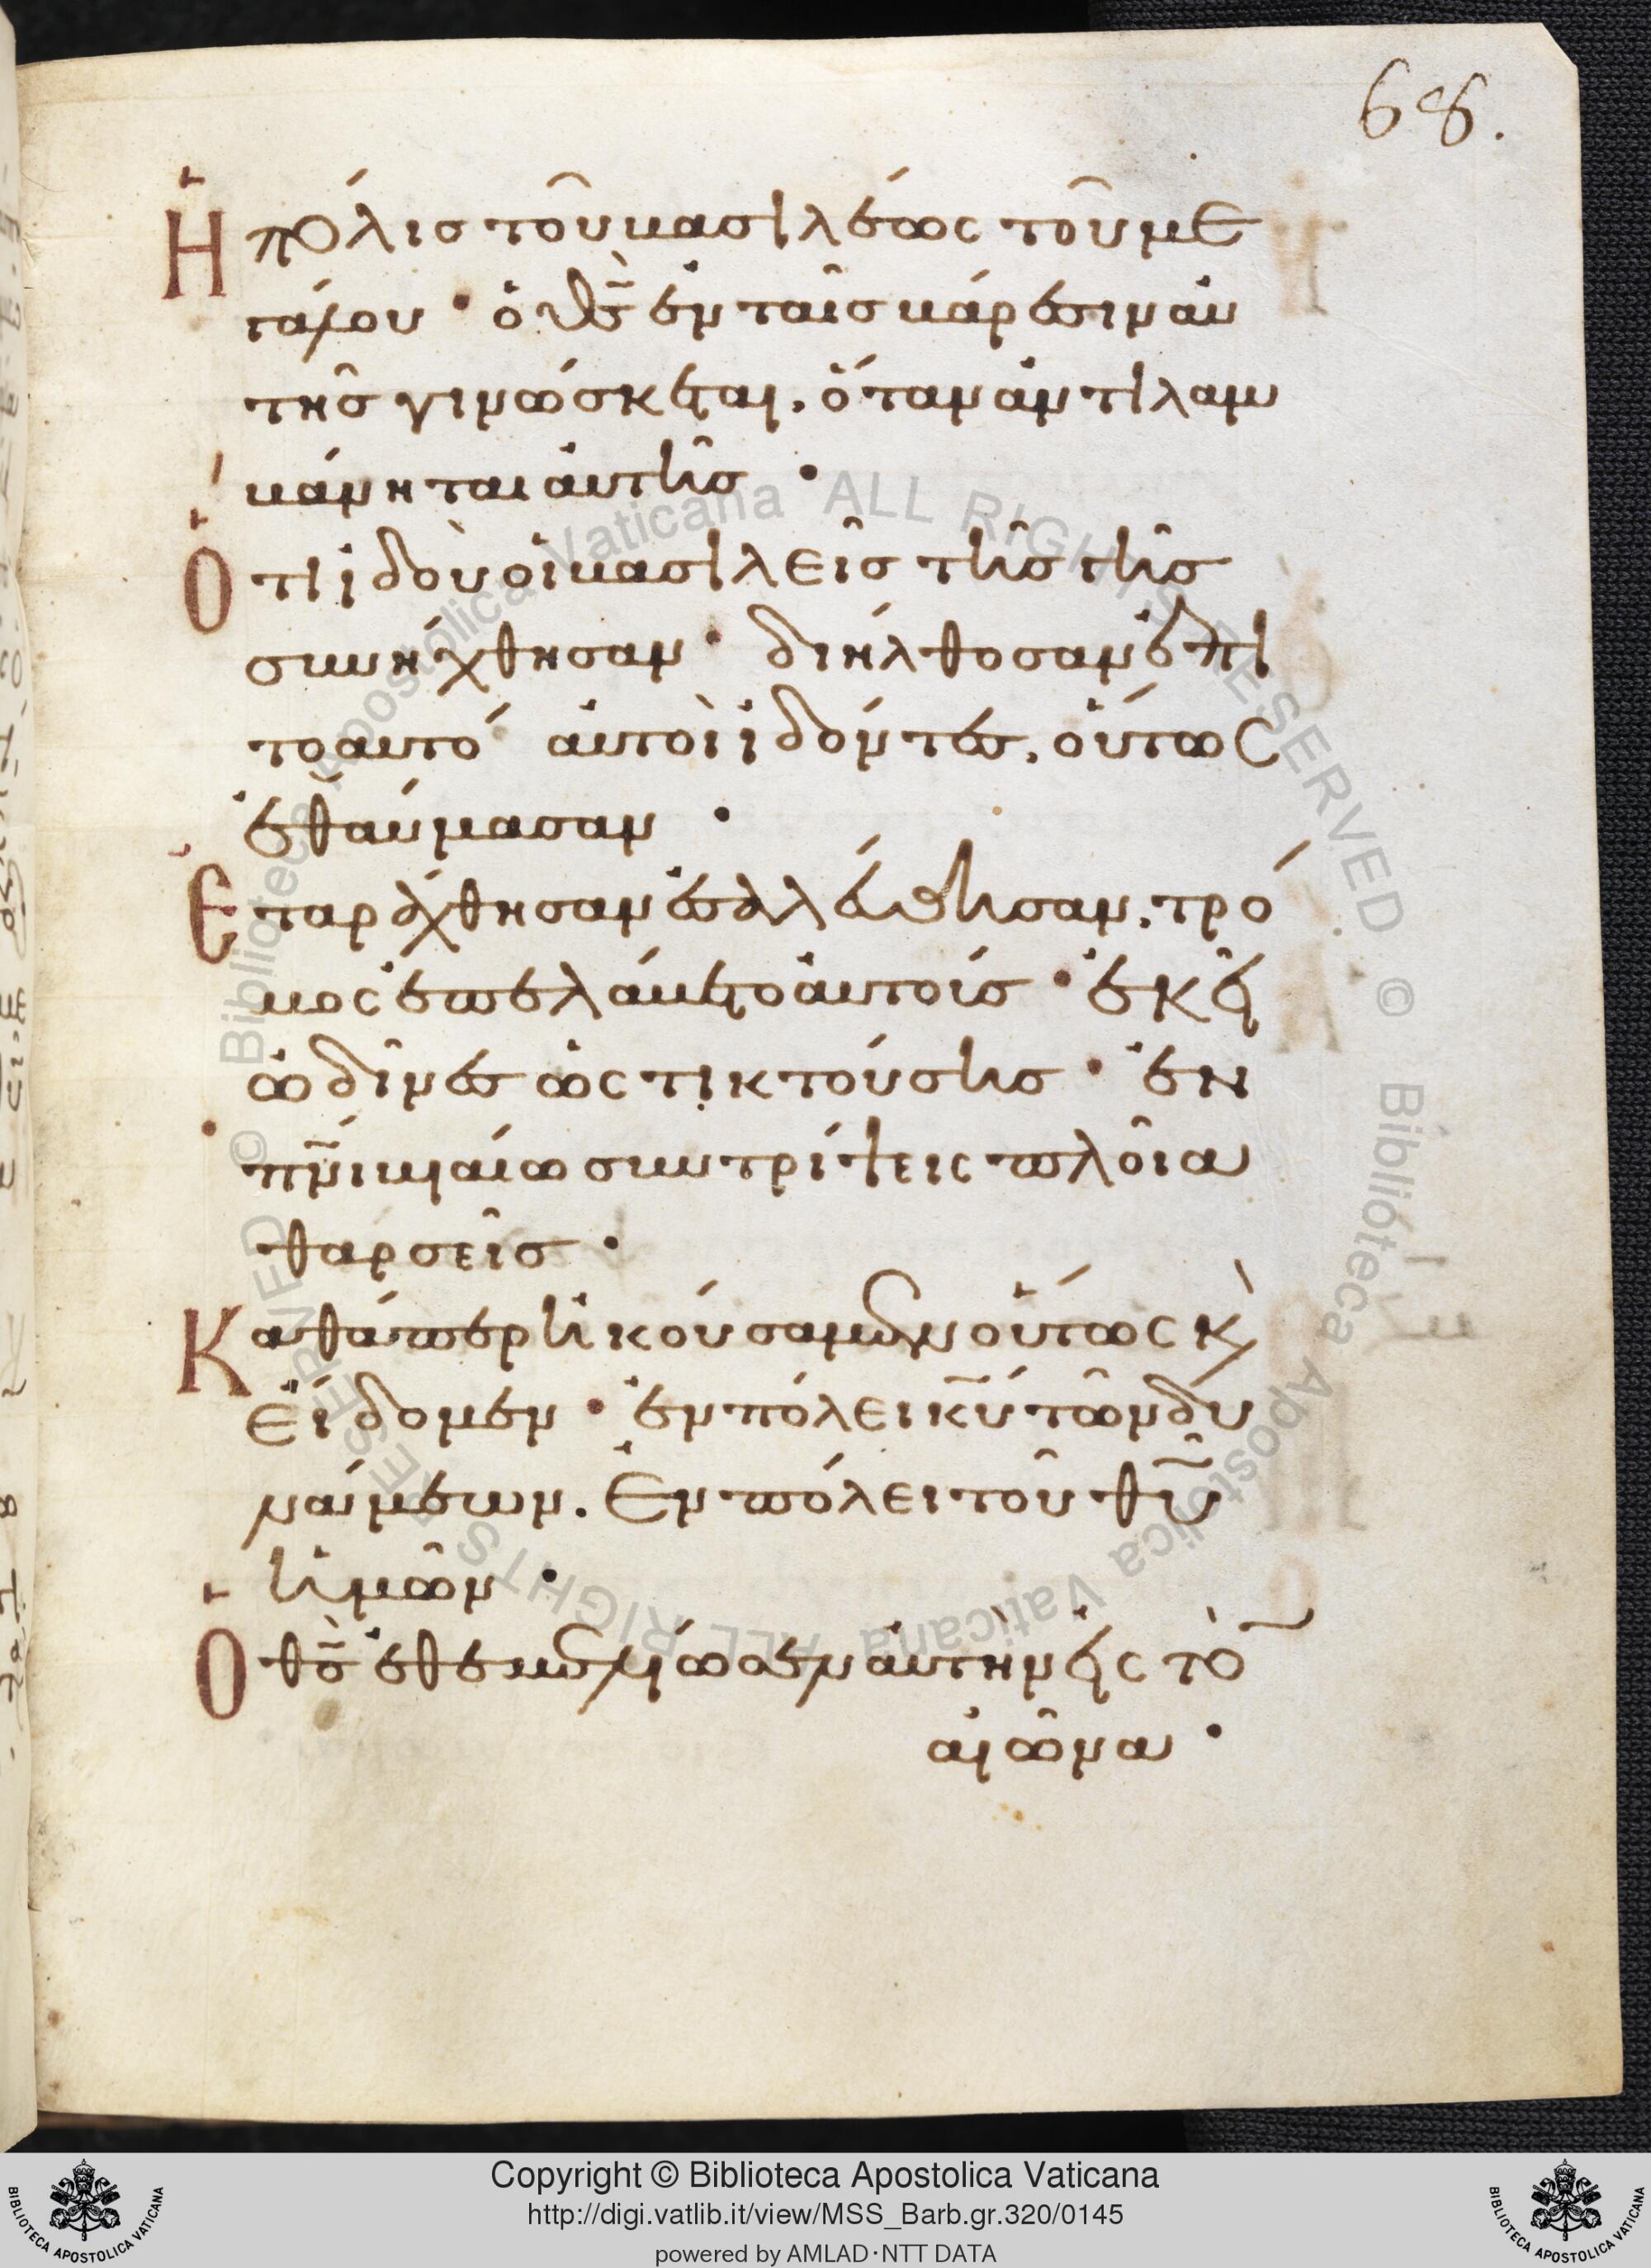 68.
Ἡ πόλις τοῦ βασιλέως τοῦ με
γάλου · ὁ θς̄ ἐν ταῖς βάρεσιν αὐ
τῆς γινώσκεται, ὅταν ἀντιλαμ
βάνηται αὐτῆς ·
Ὅτι ἰδοὺ οἱ βασιλεῖς τῆς γῆς
συνήχθησαν · διήλθοσαν ἐπὶ
τοαυτό αὐτοὶ ἰδόντες, οὕτως
ἐθαύμασαν ·
Ἐταράχθησαν ἐσαλεύθησαν, τρό
μος ἐπελάβετο αὐτοίς · ἐκεῖ
ὠδῖνες ὡς τικτούσης · ἐν
πνῑ βιαίω συντρίψεις πλοῖα
θαρσεῖς ·
Καθάπερ ἠκούσαμεν οὕτως κ̀
εἴδομεν · ἐν πόλει κῡ τῶν δυ
νάμεων. Ἐν πόλει τοῦ θῡ
ἡμῶν ·
Ὁ θς̄ ἐθεμελίωσεν αὐτὴν εἰς τὸ
αἰῶνα ·
Copyright © Biblioteca Apostolica Vaticana
http://digi.vatlib.it/view/MSS_Barb.gr.320/0145
powered by AMLAD·NTT DATA
BIBLIOTECA APOSTOLICA VATICANA
BIBLIOTECA APOSTOLICA VATICANA
© Biblioteca Apostolica Vaticana ALL RIGHTS RESERVED © Biblioteca Apostolica Vaticana ALL RIGHTS RESERVED